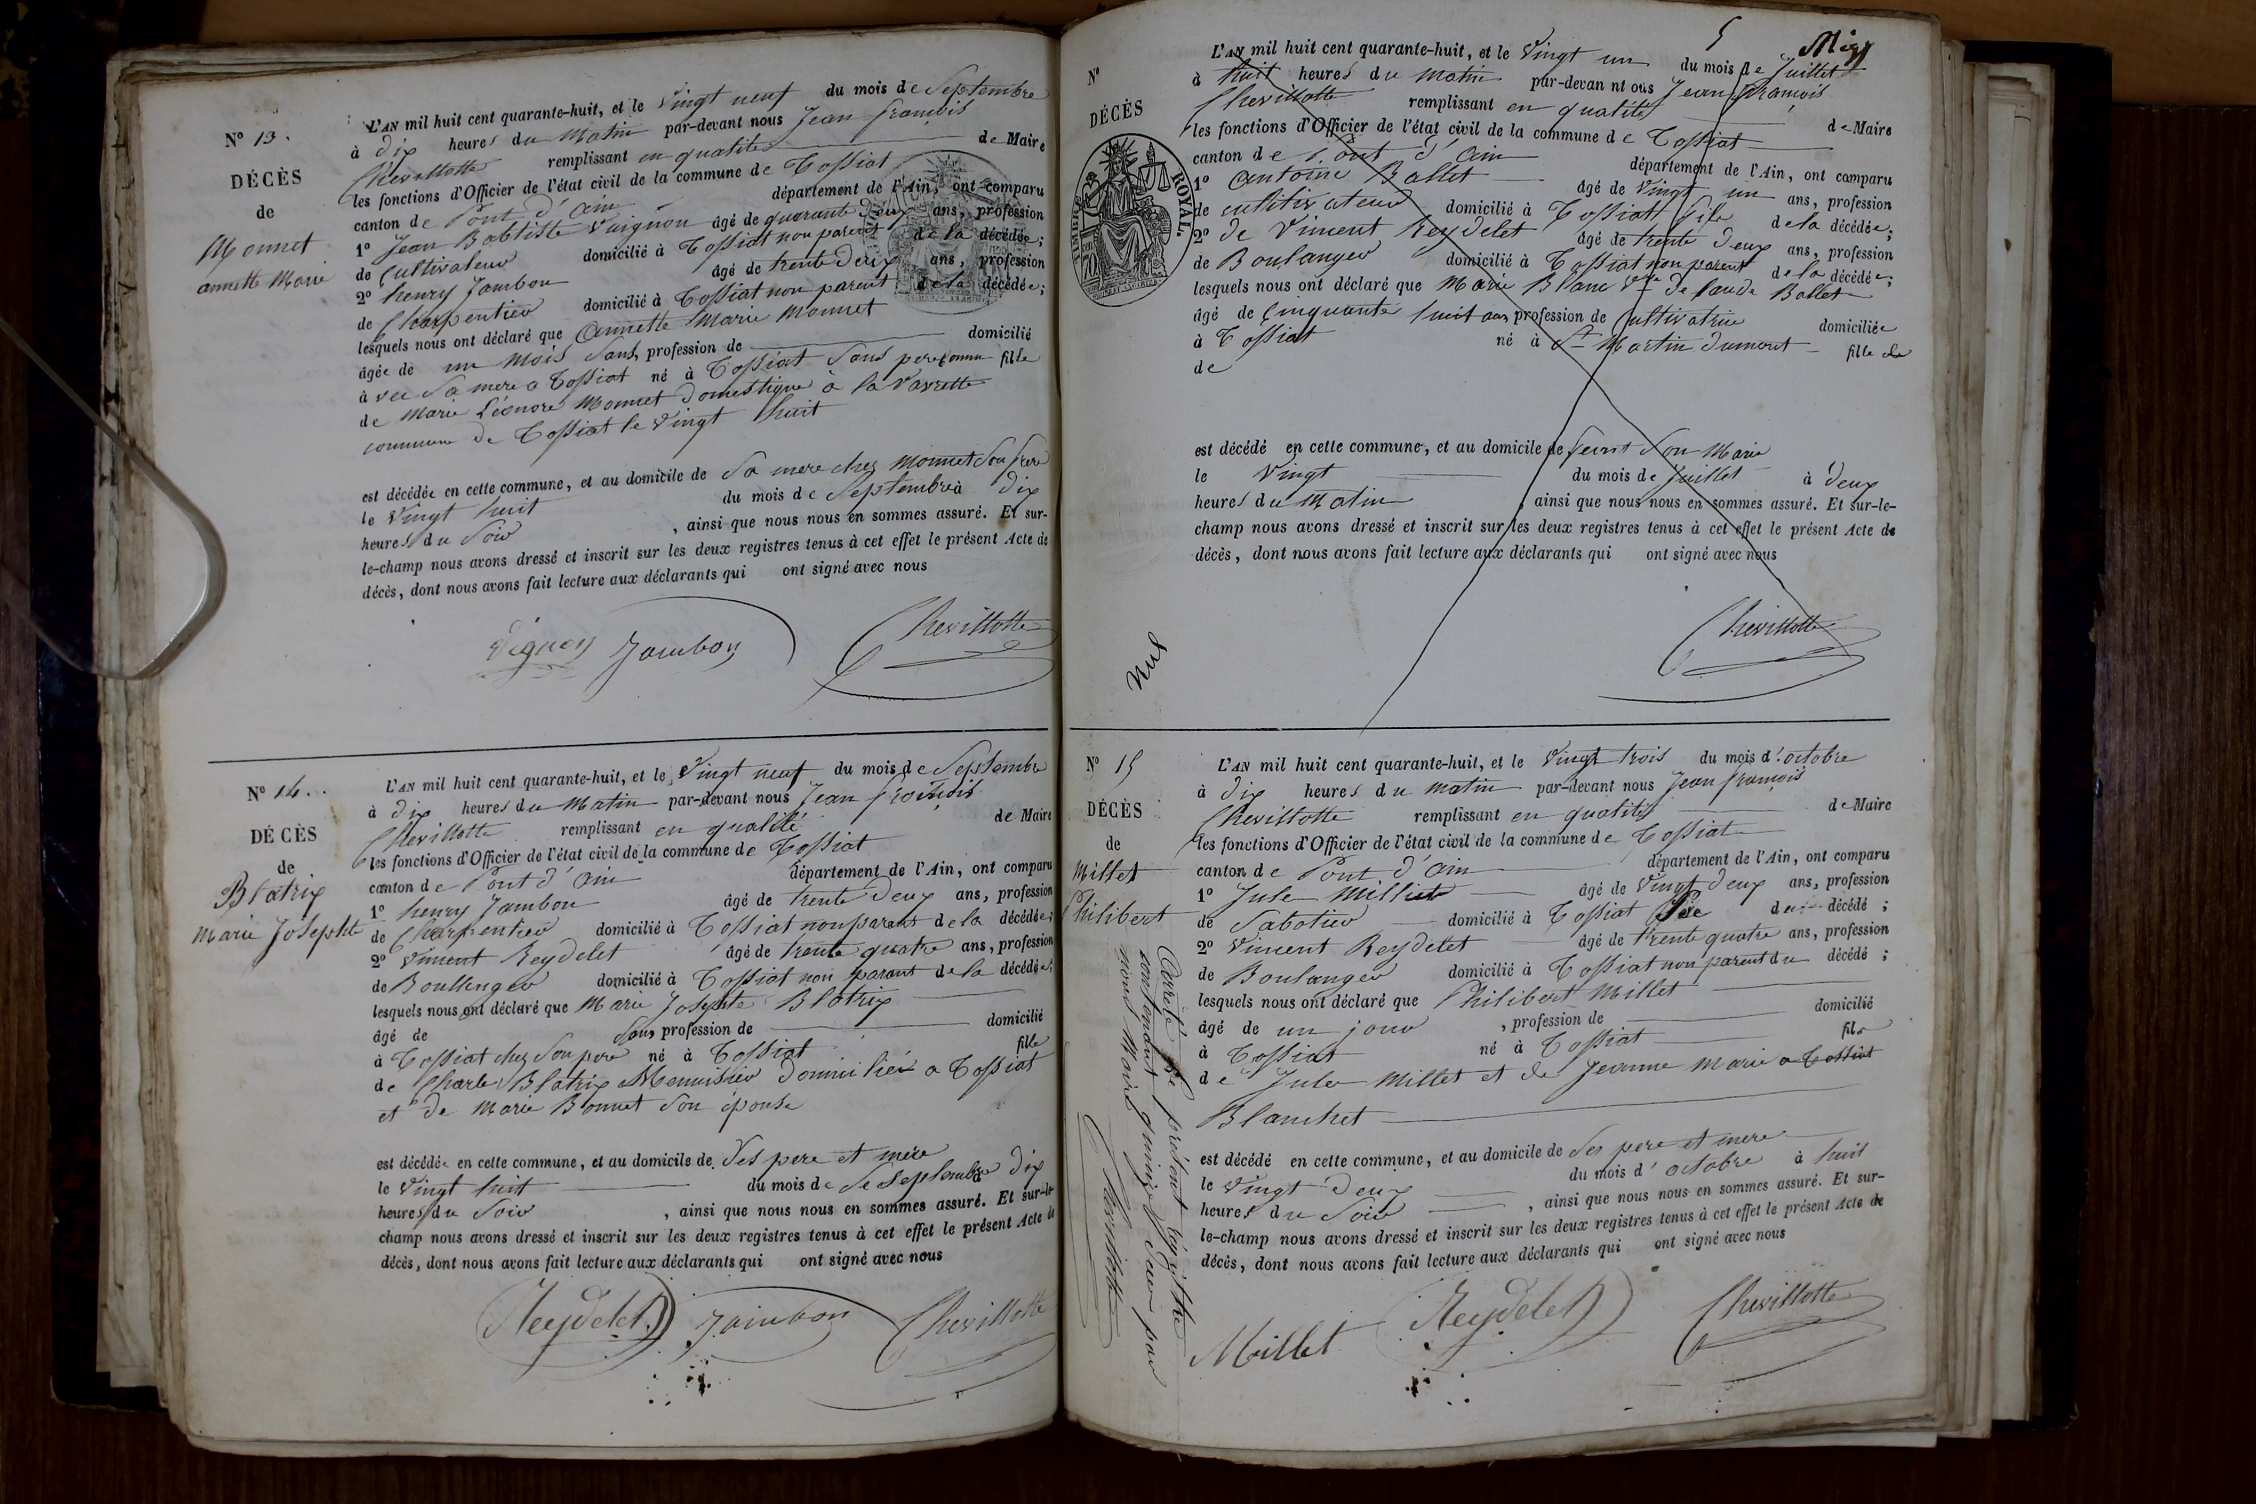 N° 13.
DÉCÈS
de
Monnet
annette Marie
L'AN mil huit cent quarante-huit, et le Vingt neuf du mois de Septembre
à dix heures du Matin par-devant nous Jean françois
Chevillotte remplissant en qualité de Maire
les fonctions d'Officier de l'état civil de la commune de Tossiat
canton de Pont d'ain département de l'Ain, ont comparu
1° Jean Babtiste Vuignon âgé de quarante deux ans, profession
de Cultivateur domicilié à Tossiat non parent de la décédée;
2° henry Jambon âgé de trente deux ans, profession
de Charpentier domicilié à Tossiat non parent de la décédée;
lesquels nous ont déclaré que Annette Marie Monnet
âgée de un mois Sans profession de domicilié
à vec Sa mere a Tossiat né à Tossiat Sans pere connu fille
de Marie Léonore Monnet Domestique à la Vavrette
commune de Tossiat le Vingt huit
est décédée en cette commune, et au domicile de Sa mere chez Monnet Son frere
le Vingt huit du mois de Septembre à dix
heures du Soir , ainsi que nous nous en sommes assuré. Et sur-
le-champ nous avons dressé et inscrit sur les deux registres tenus à cet effet le présent Acte de
décès, dont nous avons fait lecture aux déclarants qui ont signé avec nous
Vignon Jambon Chevillotte
N° 14.
DÉCÈS
de
Blatrix
Marie Josephte
L'AN mil huit cent quarante-huit, et le Vingt neuf du mois de Septembre
à dix heures du Matin par-devant nous Jean françois
Chevillotte remplissant en qualité de Maire
les fonctions d'Officier de l'état civil de la commune de Tossiat
canton de Pont d'ain département de l'Ain, ont comparu
1° henry Jambon âgé de trente deux ans, profession
de Charpentier domicilié à Tossiat non parent de la décédée;
2° Vincent Reydelet âgé de trente quatre ans, profession
de Boullenger domicilié à Tossiat non parant de la décédée;
lesquels nous ont déclaré que Marie Josephte Blatrix
âgé de Sans profession de domicilié
à Tossiat chez Son pere né à Tossiat fille
de Charles Blatrix Menuisier domicilié a Tossiat
et de Marie Bonnet Son épouse
est décédée en cette commune, et au domicile de Ses pere et mere
le Vingt huit du mois de Septembre dix
heures du Soir , ainsi que nous nous en sommes assuré. Et sur-le-
champ nous avons dressé et inscrit sur les deux registres tenus à cet effet le présent Acte de
décès, dont nous avons fait lecture aux déclarants qui ont signé avec nous
Reydelet Jambon Chevillotte
5
N°
DÉCÈS
TIMBRE ROYAL.
L'AN mil huit cent quarante-huit, et le Vingt un du mois de Juillet
à huit heures du matin par-devan nt ous Jean françois
Chevillotte remplissant en qualité de Maire
les fonctions d'Officier de l'état civil de la commune de Tossiat
canton de Pont d'ain département de l'Ain, ont comparu
1° Antoine Ballet âgé de Vingt un ans, profession
de cultivateur domicilié à Tossiat fils de la décédée;
2° de Vincent Reydelet âgé de trente deux ans, profession
de Boulanger domicilié à Tossiat non parent de la décédée;
lesquels nous ont déclaré que Marie Blanc Vve de Claude Ballet
âgé de Cinquante huit ans profession de Cultivatrice domiciliée
à Tossiat né à St Martin dumont fille de
de
est décédé en cette commune, et au domicile de feint Son Marie
le Vingt du mois de Juillet à deux
heures du Matin , ainsi que nous nous en sommes assuré. Et sur-le-
champ nous avons dressé et inscrit sur les deux registres tenus à cet effet le présent Acte de
décès, dont nous avons fait lecture aux déclarants qui ont signé avec nous
Chevillotte
Nul
N° 15
DÉCÈS
de
Millet
Philibert
L'AN mil huit cent quarante-huit, et le Vingt trois du mois d'octobre
à dix heures du matin par-devant nous Jean françois
Chevillotte remplissant en qualité de Maire
les fonctions d'Officier de l'état civil de la commune de Tossiat
canton de Pont d'ain département de l'Ain, ont comparu
1° Jule Milliet âgé de Vingt deux ans, profession
de Sabotier domicilié à Tossiat Pere du décédé;
2° Vincent Reydelet âgé de trente quatre ans, profession
de Boulanger domicilié à Tossiat non parent du décédé;
lesquels nous ont déclaré que Philibert Millet
âgé de un jour , profession de domicilié
à Tossiat né à Tossiat fils
de Jules Millet et de Jeanne Marie a Tossiat
Blanchet
est décédé en cette commune, et au domicile de Ses pere et mere
le Vingt deux du mois d'octobre à huit
heures du Soir , ainsi que nous nous en sommes assuré. Et sur-
le-champ nous avons dressé et inscrit sur les deux registres tenus à cet effet le présent Acte de
décès, dont nous avons fait lecture aux déclarants qui ont signé avec nous
Millet Reydelet Chevillotte
Arreté le présent Régistre
contenant quinze par
nous Maire
Chevillotte